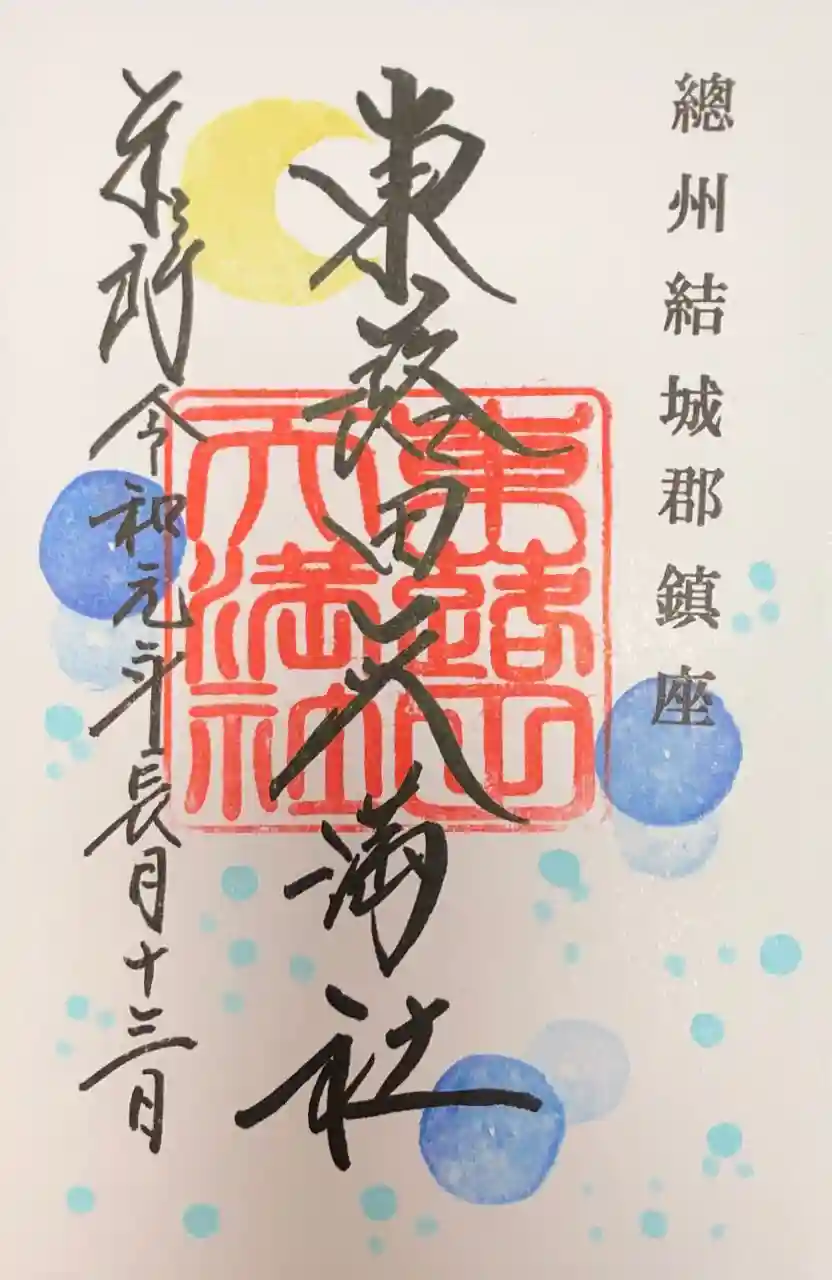 總州結城郡鎮座
東蕗田天満社
令和元年長月十三日
東蕗田
天満社